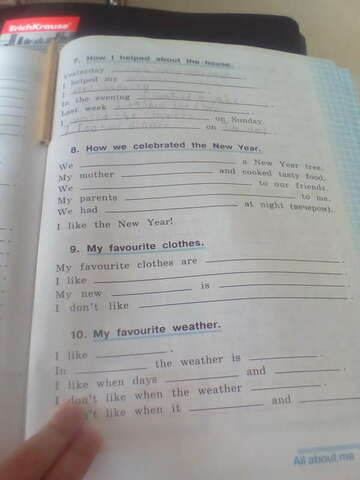 ErichKrause
7. How I helped about the house.
Yesterday
I helped my
I
In the evening
Last week
on Sunday.
on
8. How we celebrated the New Year.
We ____________ a New Year tree.
My mother ____________ and cooked tasty food.
We ____________ to our friends.
My parents ____________ to me.
We had ____________ at night (вечером).
I like the New Year!
9. My favourite clothes.
My favourite clothes are ____________.
I like ____________.
My new ____________ is ____________.
I don't like ____________.
10. My favourite weather.
I like ____________.
In ____________ the weather is ____________.
I like when days ____________ and ____________.
I don't like when the weather ____________.
like when it ____________ and ____________.
All about me